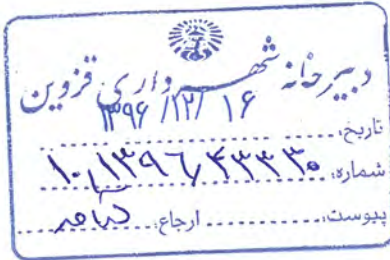 دبیرخانه شهرداری قزوین
۱۳۹۶/۱۲/۱۶
تاریخ:
شماره: ۱۰,۱۳۹۶,۴۳۳۳۰
پیوست: ارجاع: